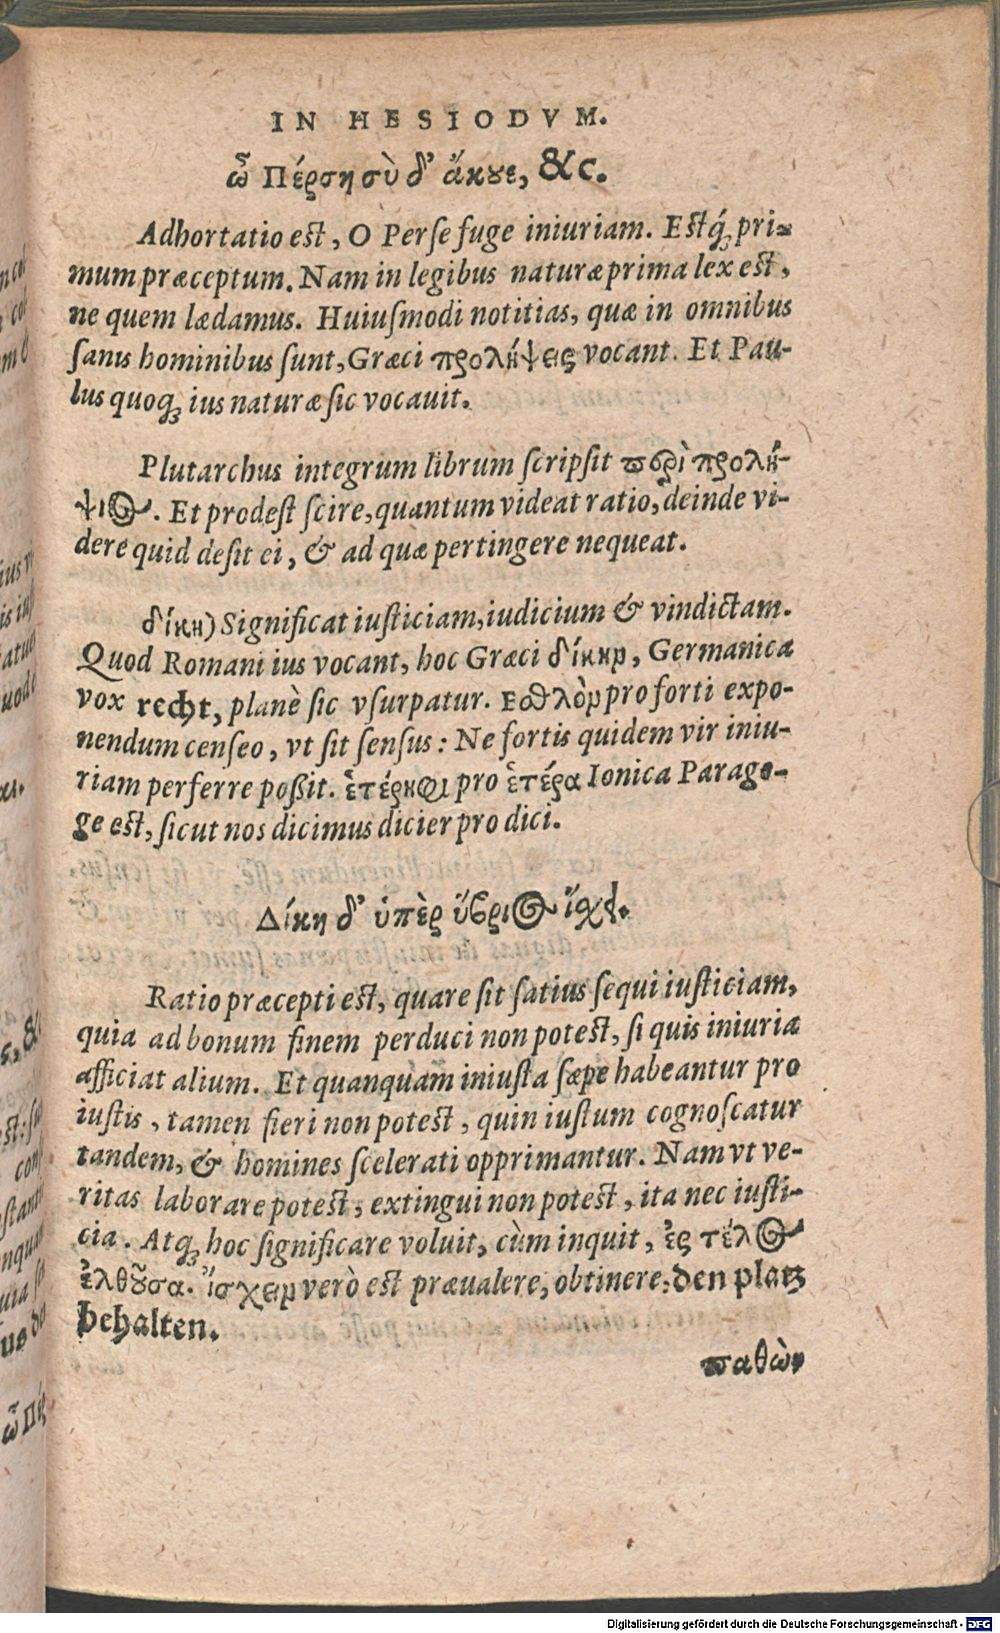 IN HESIODVM.
ὦ Πέρση σὺ δ' ἄκουε, &c.
Adhortatio est, O Perse fuge iniuriam. Estq́ꝫ pri-
mum præceptum. Nam in legibus naturæ prima lex est,
ne quem lædamus. Huiusmodi notitias, quæ in omnibus
sanis hominibus sunt, Græci προλήψεις vocant. Et Pau-
lus quoqꝫ ius naturæ sic vocauit.
Plutarchus integrum librum scripsit περὶ προλή-
ψιος. Et prodest scire, quantum videat ratio, deinde vi-
dere quid desit ei, & ad quæ pertingere nequeat.
δίκη) Significat iusticiam, iudicium & vindictam.
Quod Romani ius vocant, hoc Græci δίκην, Germanica
vox recht, planè sic vsurpatur. Εσθλὸν pro forti expo-
nendum censeo, vt sit sensus: Ne fortis quidem vir iniu-
riam perferre poßit. ἑτέρηφι pro ἑτέρα Ionica Parago-
ge est, sicut nos dicimus dicier pro dici.
Δίκη δ' ὑπὲρ ὕβριος ἴσχει.
Ratio præcepti est, quare sit satius sequi iusticiam,
quia ad bonum finem perduci non potest, si quis iniuria
afficiat alium. Et quanquam iniusta sæpe habeantur pro
iustis, tamen fieri non potest, quin iustum cognoscatur
tandem, & homines scelerati opprimantur. Nam vt ve-
ritas laborare potest, extingui non potest, ita nec iusti-
cia. Atqꝫ hoc significare voluit, cùm inquit, ἐς τέλος
ἐλθοῦσα. ἴσχειν verò est præualere, obtinere: den platz
behalten.
παθὼν
Digitalisierung gefördert durch die Deutsche Forschungsgemeinschaft - DFG